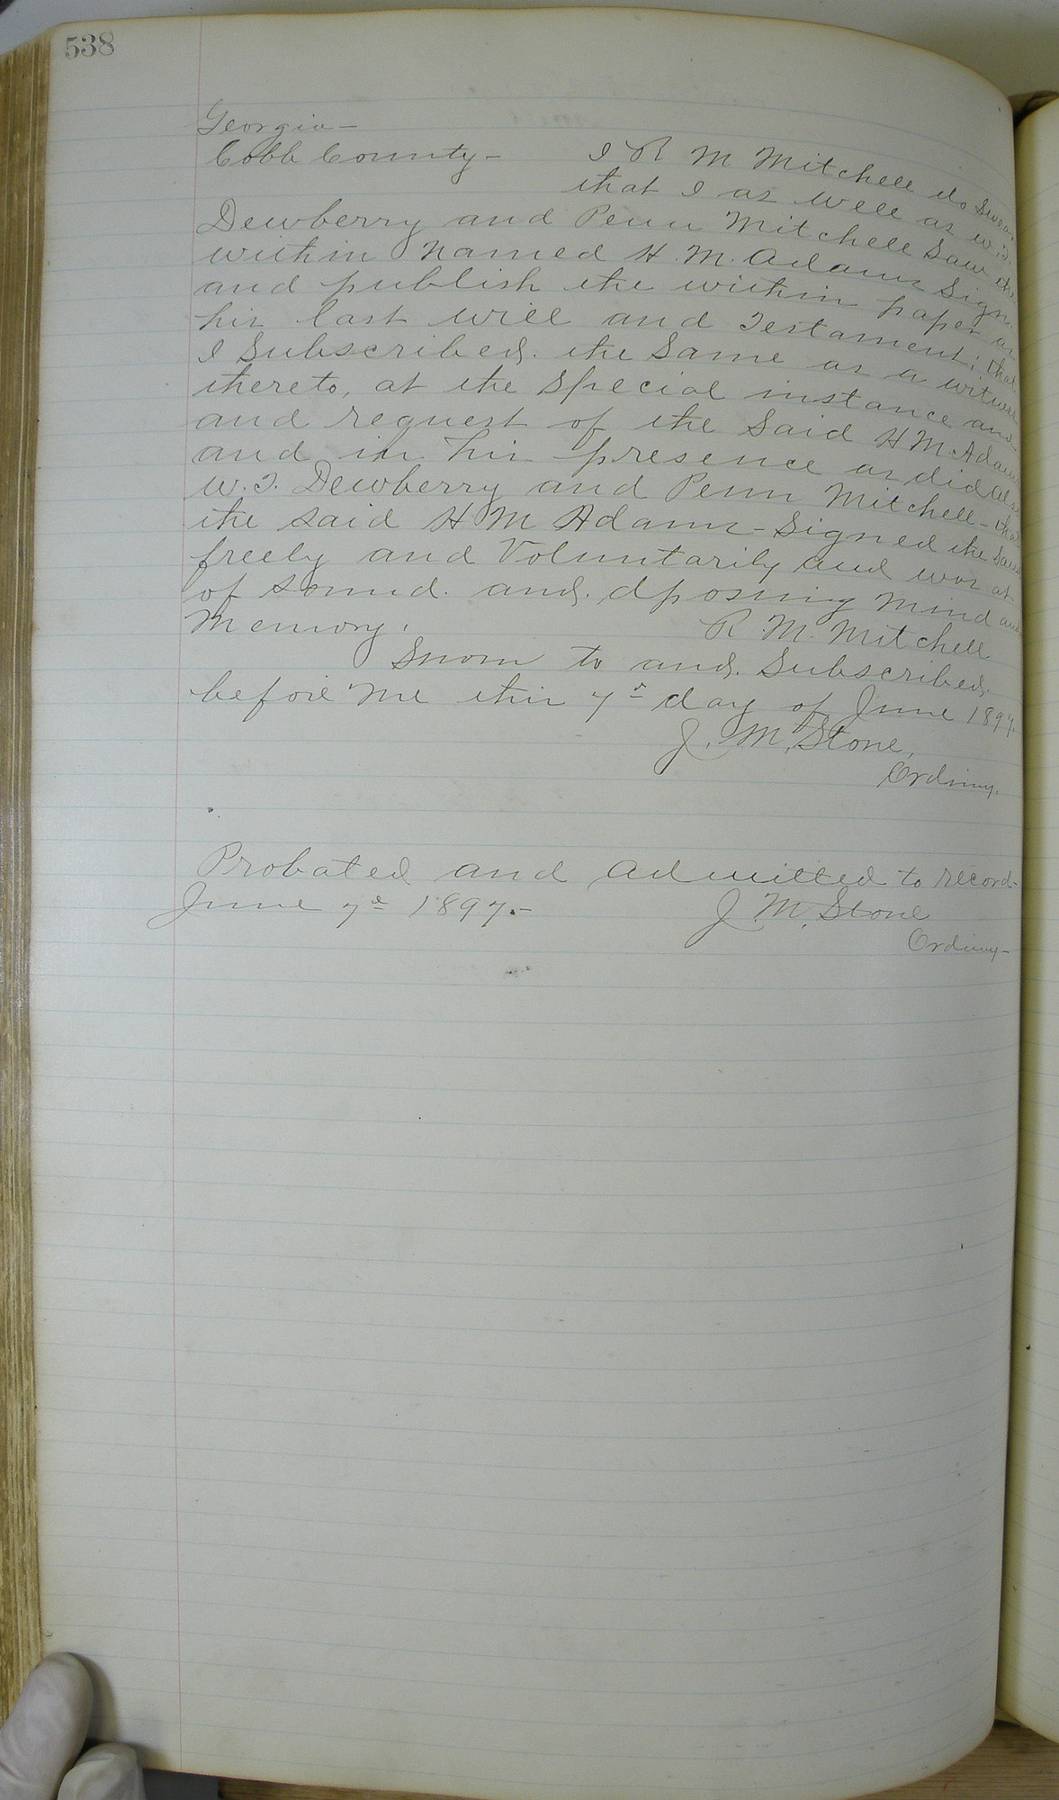 538
Georgia —
Cobb County — I R M Mitchell do Swear
that I as well as W. T.
Dewberry and Penn Mitchell Saw the
within named H. M. Adams Sign
and publish the within paper as
his last will and Testament; that
I Subscribed the Same as a witness
thereto, at the special instance and
and request of the Said H M Adams
and in his presence as did also
W. T. Dewberry and Penn Mitchell — that
the said H M Adams — Signed the Same
freely and Voluntarily and was at
of sound and dposing mind and
Memory. R. M. Mitchell
Sworn to and Subscribed
before me this 7th day of June 1897.
J. M. Stone,
Ordinary.
Probated and admitted to record —
June 7th 1897. — J. M. Stone
Ordinary —